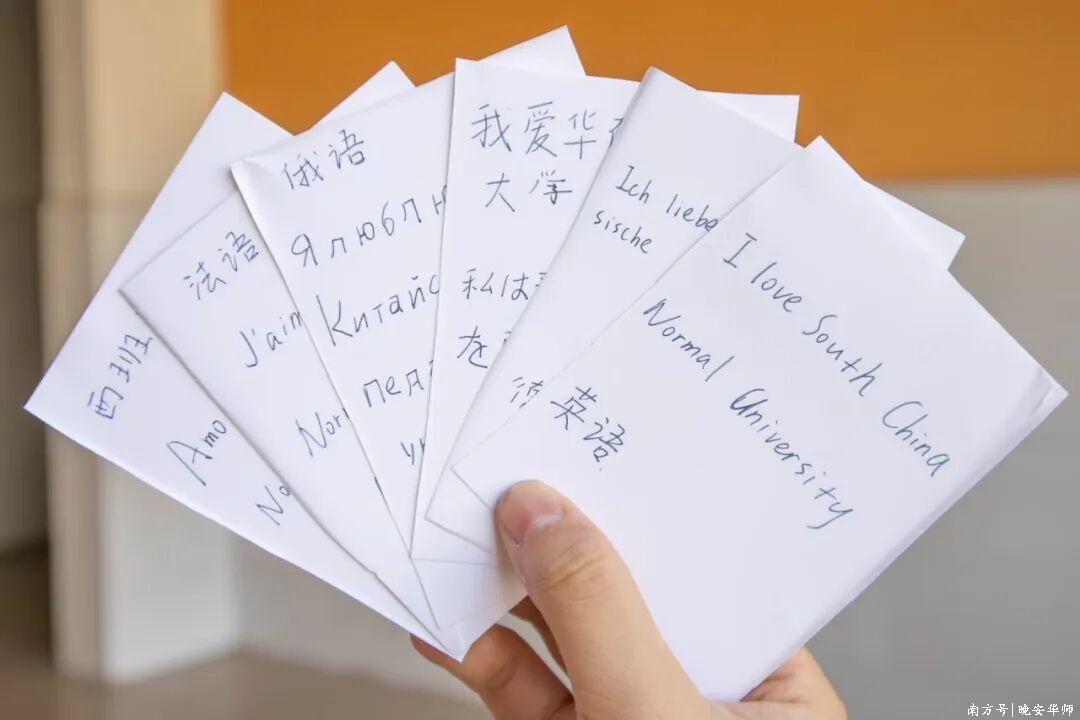 西语
Amo
No
法语
J'aim
Nor
俄语
Я люблю
Китайс
педа
ун
我爱华
大学
私は
Ich liebe
sische
I love South China
Normal University
英语
南方号|晚安华师